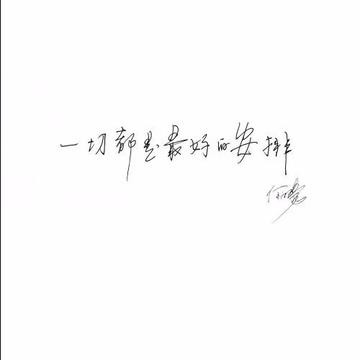 一切都是最好的安排